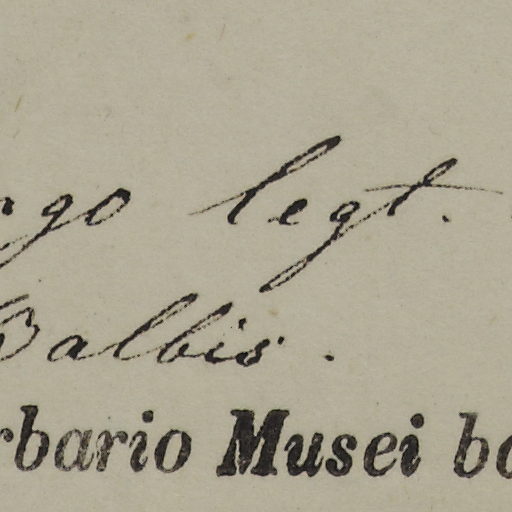 ngo legt.
Balbis.
rbario Musei bo